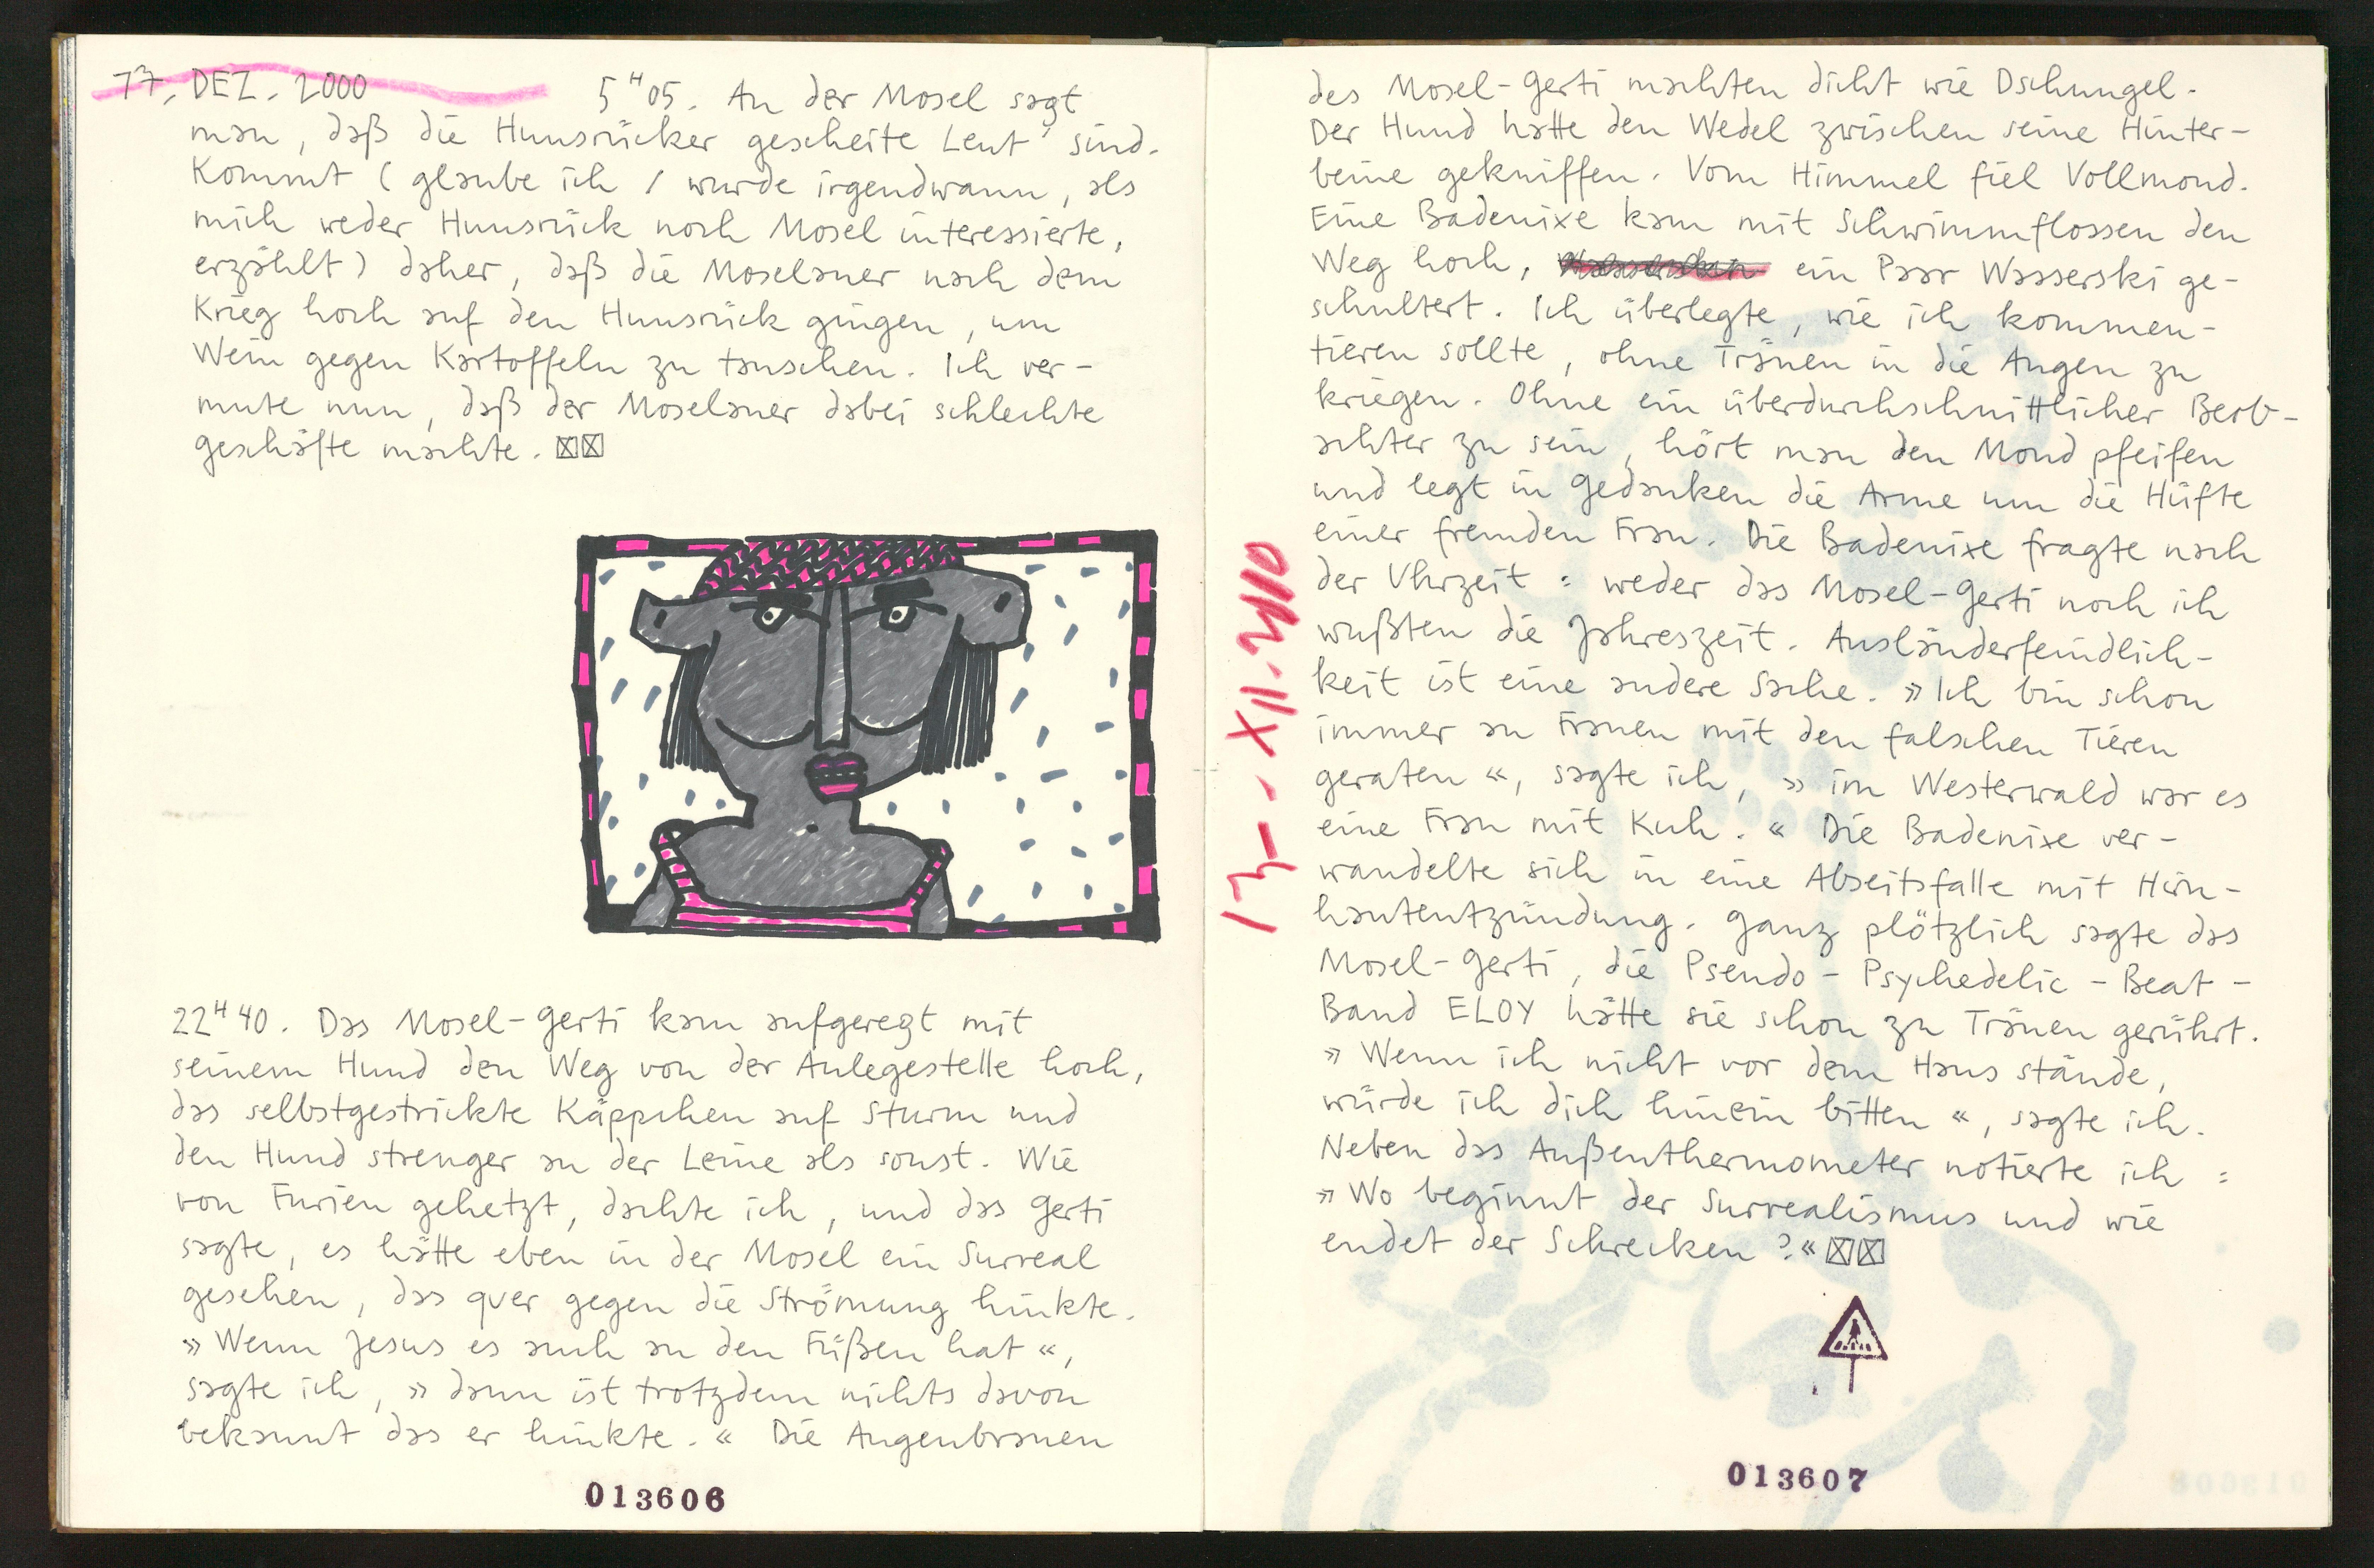 13. DEZ. 2000 5ᴴ05. An der Mosel sagt
man, daß die Hunsrücker gescheite Leut' sind.
Kommt (glaube ich / wurde irgendwann, als
mich weder Hunsrück noch Mosel interessierte,
erzählt) daher, daß die Moselaner nach dem
Krieg hoch auf den Hunsrück gingen, um
Wein gegen Kartoffeln zu tauschen. Ich ver-
mute nun, daß der Moselaner dabei schlechte
Geschäfte machte. ☒☒
22ᴴ40. Das Mosel-Gerti kam aufgeregt mit
seinem Hund den Weg von der Anlegestelle hoch,
das selbstgestrickte Käppchen auf Sturm und
den Hund strenger an der Leine als sonst. Wie
von Furien gehetzt, dachte ich, und das Gerti
sagte, es hätte eben in der Mosel ein Surreal
gesehen, das quer gegen die Strömung hinkte.
»Wenn Jesus es auch an den Füßen hat«,
sagte ich, »dann ist trotzdem nichts davon
bekannt das er hinkte.« Die Augenbrauen
013606
des Mosel-Gerti machten dicht wie Dschungel.
Der Hund hatte den Wedel zwischen seine Hinter-
beine gekniffen. Vom Himmel fiel Vollmond.
Eine Badenixe kam mit Schwimmflossen den
Weg hoch, ein Paar Wasserski ge-
schultert. Ich überlegte, wie ich kommen-
tieren sollte, ohne Tränen in die Augen zu
kriegen. Ohne ein überdurchschnittlicher Beob-
achter zu sein, hört man den Mond pfeifen
und legt in Gedanken die Arme um die Hüfte
einer fremden Frau. Die Badenixe fragte nach
der Uhrzeit: weder das Mosel-Gerti noch ich
wußten die Jahreszeit. Ausländerfeindlich-
keit ist eine andere Sache. »Ich bin schon
immer an Frauen mit den falschen Tieren
geraten«, sagte ich, »im Westerwald war es
eine Frau mit Kuh.« Die Badenixe ver-
wandelte sich in eine Abseitsfalle mit Hirn-
hautentzündung. Ganz plötzlich sagte das
Mosel-Gerti, die Pseudo-Psychedelic-Beat-
Band ELOY hätte sie schon zu Tränen gerührt.
»Wenn ich nicht vor dem Haus stände,
würde ich dich hinein bitten«, sagte ich.
Neben das Außenthermometer notierte ich:
»Wo beginnt der Surrealismus und wie
endet der Schrecken?« ☒☒
013607